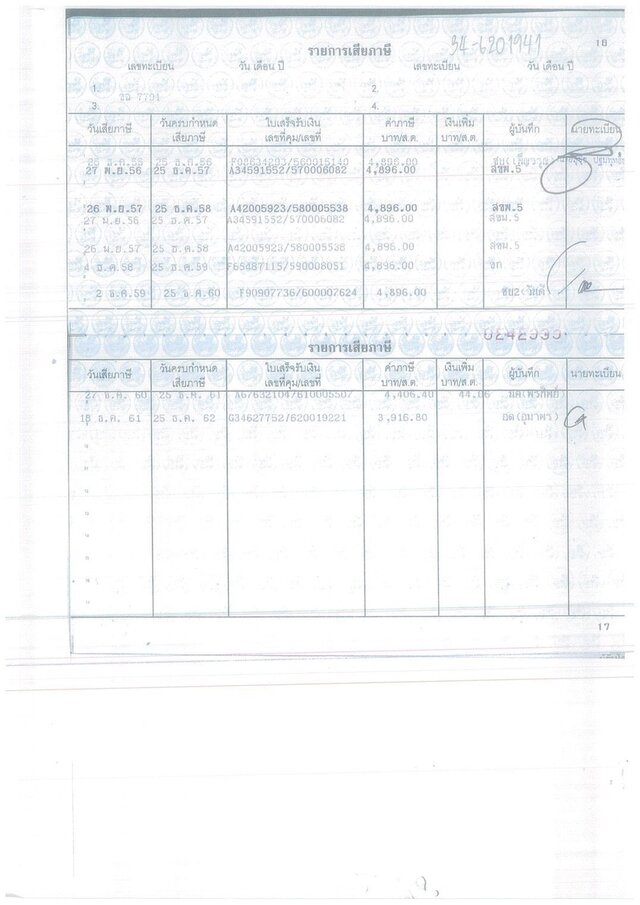 34-6201941
16
รายการเสียภาษี
เลขทะเบียน วัน เดือน ปี เลขทะเบียน วัน เดือน ปี
1. 2.
3. 4.
วันเสียภาษี วันครบกำหนดเสียภาษี ใบเสร็จรับเงิน เลขที่คุม/เลขที่ ค่าภาษี บาท/ส.ต. เงินเพิ่ม บาท/ส.ต. ผู้บันทึก นายทะเบียน
25 ธ.ค.56 F08634293/560015140 4,896.00
27 พ.ย.56 25 ธ.ค.57 A34591552/570006082 4,896.00 สขพ.5
26 พ.ย.57 25 ธ.ค.58 A42005923/580005538 4,896.00 สขพ.5
25 ธ.ค.57 A34591552/570006082 4,896.00
25 ธ.ค.58 A42005923/580005538 4,896.00
4 ธ.ค.58 25 ธ.ค.59 F65487115/590008051 4,896.00
2 ธ.ค.59 25 ธ.ค.60 F90907736/600007624 4,896.00
รายการเสียภาษี
วันเสียภาษี วันครบกำหนดเสียภาษี ใบเสร็จรับเงิน เลขที่คุม/เลขที่ ค่าภาษี บาท/ส.ต. เงินเพิ่ม บาท/ส.ต. ผู้บันทึก นายทะเบียน
27 ธ.ค. 60 25 ธ.ค. 61 A67632104/610005507 4,406.40 44.06
18 ธ.ค. 61 25 ธ.ค. 62 G34627752/620019221 3,916.80
17